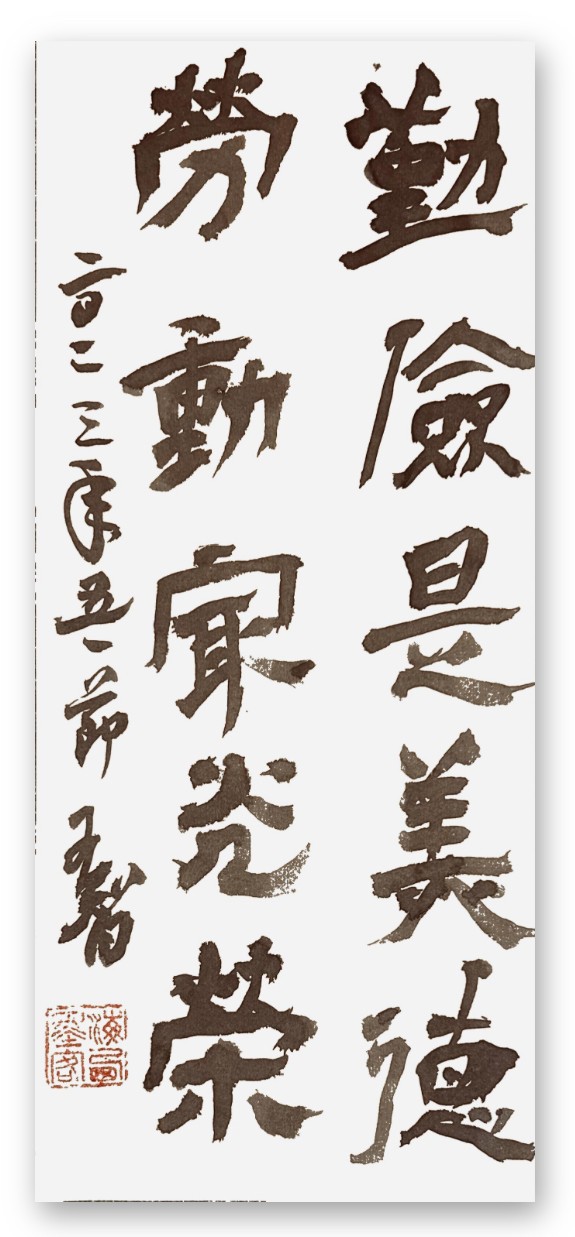 勤儉是美德
勞動冣光榮
二〇二三年五一節